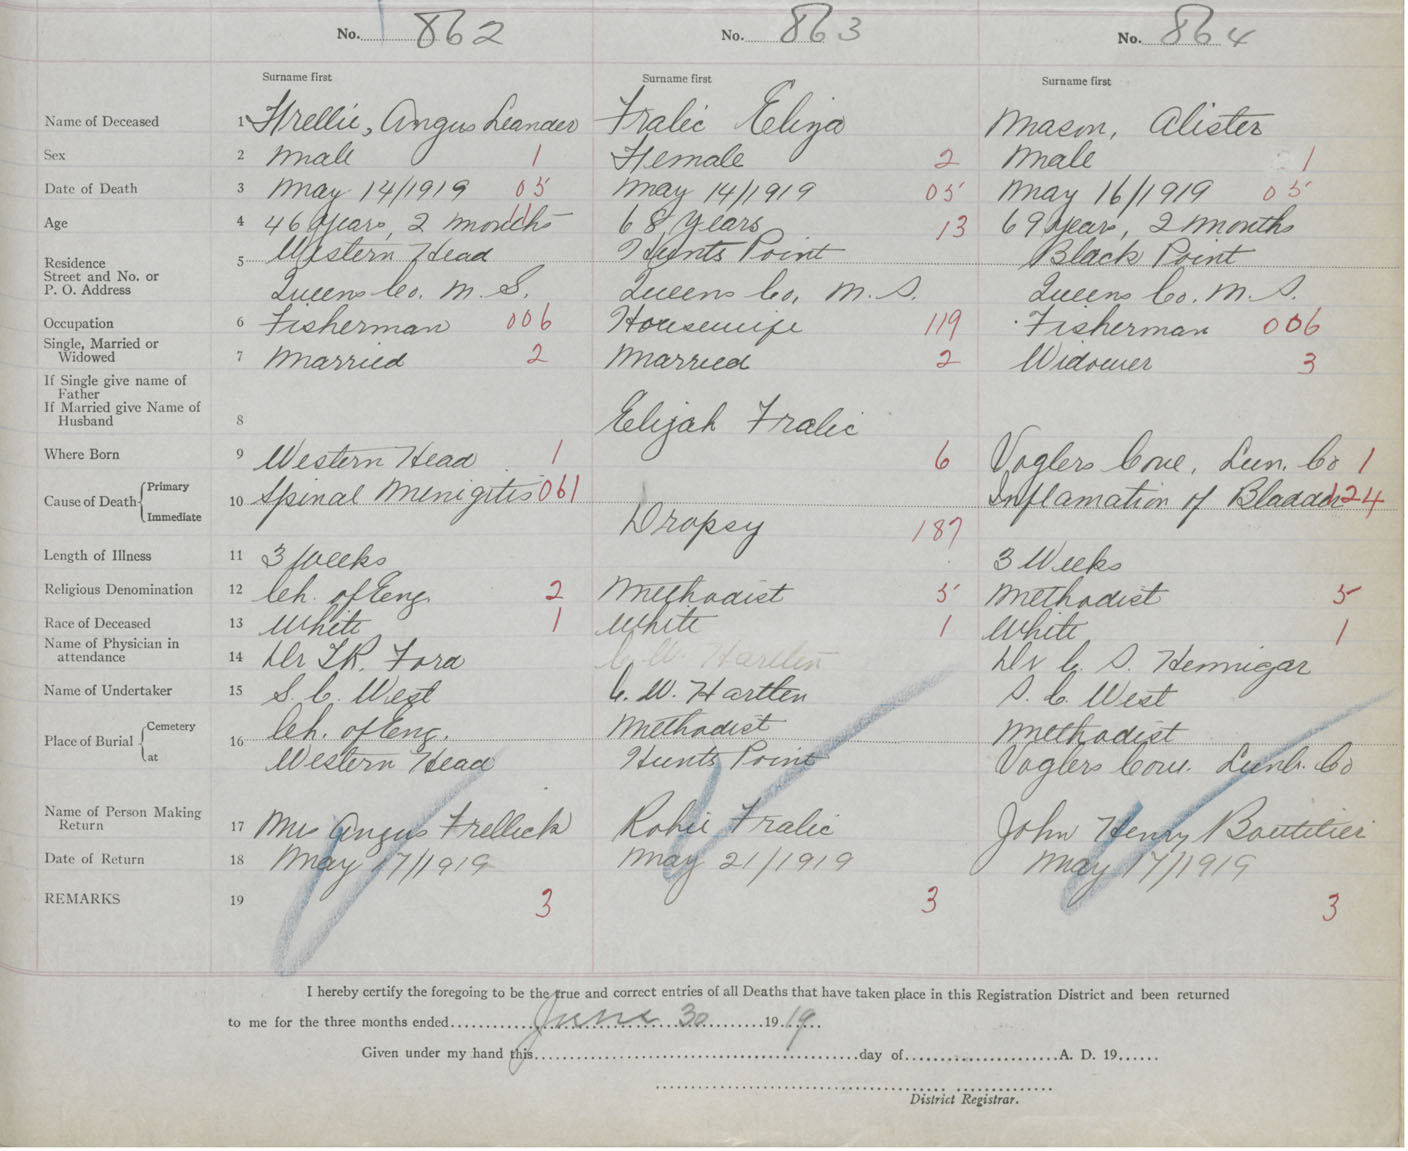 No. 862 No. 863 No. 864
Surname first Surname first Surname first
Name of Deceased 1 Frellic, Angus Leander Fralic Eliza Mason, Alister
Sex 2 Male 1 Female 2 Male 1
Date of Death 3 May 14/1919 05 May 14/1919 05 May 16/1919 05
Age 4 46 years, 2 months 11 68 years 13 69 years, 2 months
Residence
Street and No. or
P. O. Address
5 Western Head Hunts Point Black Point
Queens Co. N. S. Queens Co. N. S. Queens Co. N. S.
Occupation 6 Fisherman 006 Housewife 119 Fisherman 006
Single, Married or
Widowed 7 Married 2 Married 2 Widower 3
If Single give name of
Father
If Married give Name of
Husband 8 Elijah Fralic
Where Born 9 Western Head 1 6 Voglers Cove, Lun. Co 1
Cause of Death Primary 10 Spinal Menigitis 061 Inflamation of Bladder 124
Immediate Dropsy 187
Length of Illness 11 3 weeks 3 Weeks
Religious Denomination 12 Ch. of Eng. 2 Methodist 5 Methodist 5
Race of Deceased 13 White 1 White 1 White 1
Name of Physician in
attendance 14 Dr T.R. Ford C. W. Hartlen Dr C. S. Hennigar
Name of Undertaker 15 S. C. West C. W. Hartlen S. C. West
Place of Burial Cemetery 16 Ch. of Eng. Methodist Methodist
at Western Head Hunts Point Voglers Cove. Lunb. Co
Name of Person Making
Return 17 Mrs Angus Frellick Rohie Fralic John Henry Boutilier
Date of Return 18 May 17/1919 May 21/1919 May 17/1919
REMARKS 19 3 3 3
I hereby certify the foregoing to be the true and correct entries of all Deaths that have taken place in this Registration District and been returned
to me for the three months ended June 30 1919
Given under my hand this day of A. D. 19
District Registrar.